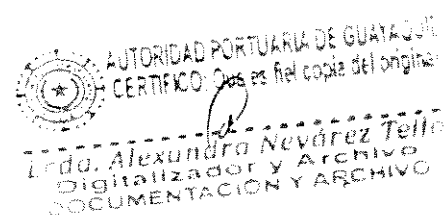 AUTORIDAD PORTUARIA DE GUAYAQUIL
CERTIFICO: Que es fiel copia del original
Lcda. Alexandra Nevárez Tello
Digitalizador y Archivo
DOCUMENTACION Y ARCHIVO